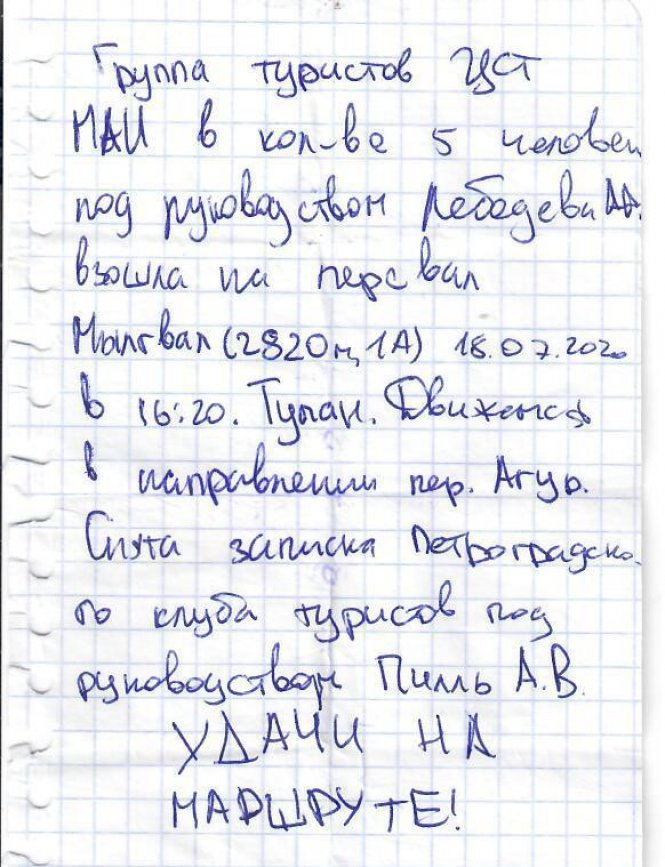 Группа туристов ЦСТ
МАИ в кол-ве 5 человек
под руководством Лебедева АА.
взошла на перевал
Мылгвал (2820м, 1А) 18.07.2020
в 16:20. Туман. Движемся
в направлении пер. Агур.
Снята записка Петроградско-
го клуба туристов под
руководством Пилль А.В.
УДАЧИ НА
МАРШРУТЕ!